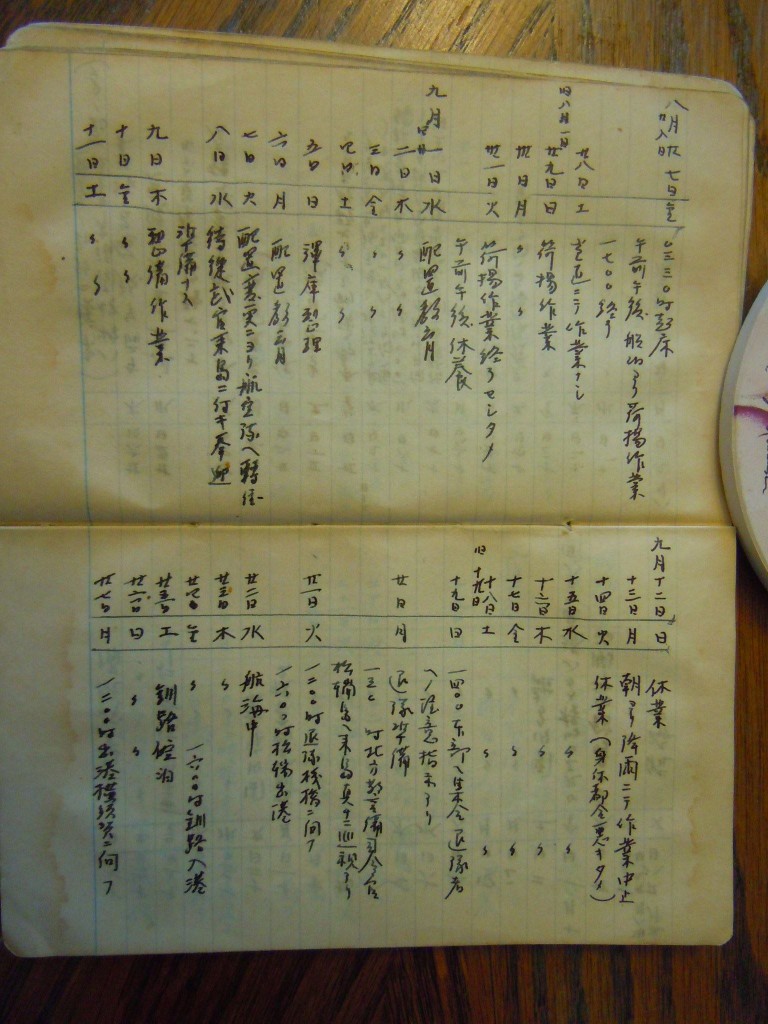 八月 七日 金 〇三三〇時起床
午前午後 船ヨリ荷揚作業
一七〇〇終リ
廿八日 土 ニテ作業ナシ
旧八月一日
廿九日 日 荷揚作業
卅日 月 〃 〃
卅一日 火 荷揚作業終ラセシタメ
午前午後休養
九月一日 水 配置教育
二日 木 〃 〃
三日 金 〃 〃
四日 土 〃 〃
五日 日 庫整理
六日 月 配置教育
七日 火 配置変更ニヨリ航空隊ヘ転住
八日 水 侍従武官来島ニ付キ奉迎
準備ナス
九日 木 整備作業
十日 金 〃 〃
十一日 土 〃 〃
九月十二日 日 休業
十三日 月 朝ヨリ降雨ニテ作業中止
十四日 火 休業(身体都合悪キタメ)
十五日 水 〃 〃
十六日 木 〃 〃
十七日 金 〃 〃
十八日 土 〃 〃
旧
十九日 日 一四〇〇本部ヘ集合退隊者
ノ注意指示アリ
廿日 月 退隊準備
時北方部 備司令官
松輪島ヘ来島 巡視アリ
廿一日 火 一二〇〇時退隊桟橋ニ向フ
一六〇〇時松輪出港
廿二日 水 航海中
廿三日 木 〃
廿四日 金 〃 一六〇〇時釧路入港
廿五日 土 釧路碇泊
廿六日 日 〃 〃
廿七日 月 一二〇〇時出港横須賀ニ向フ